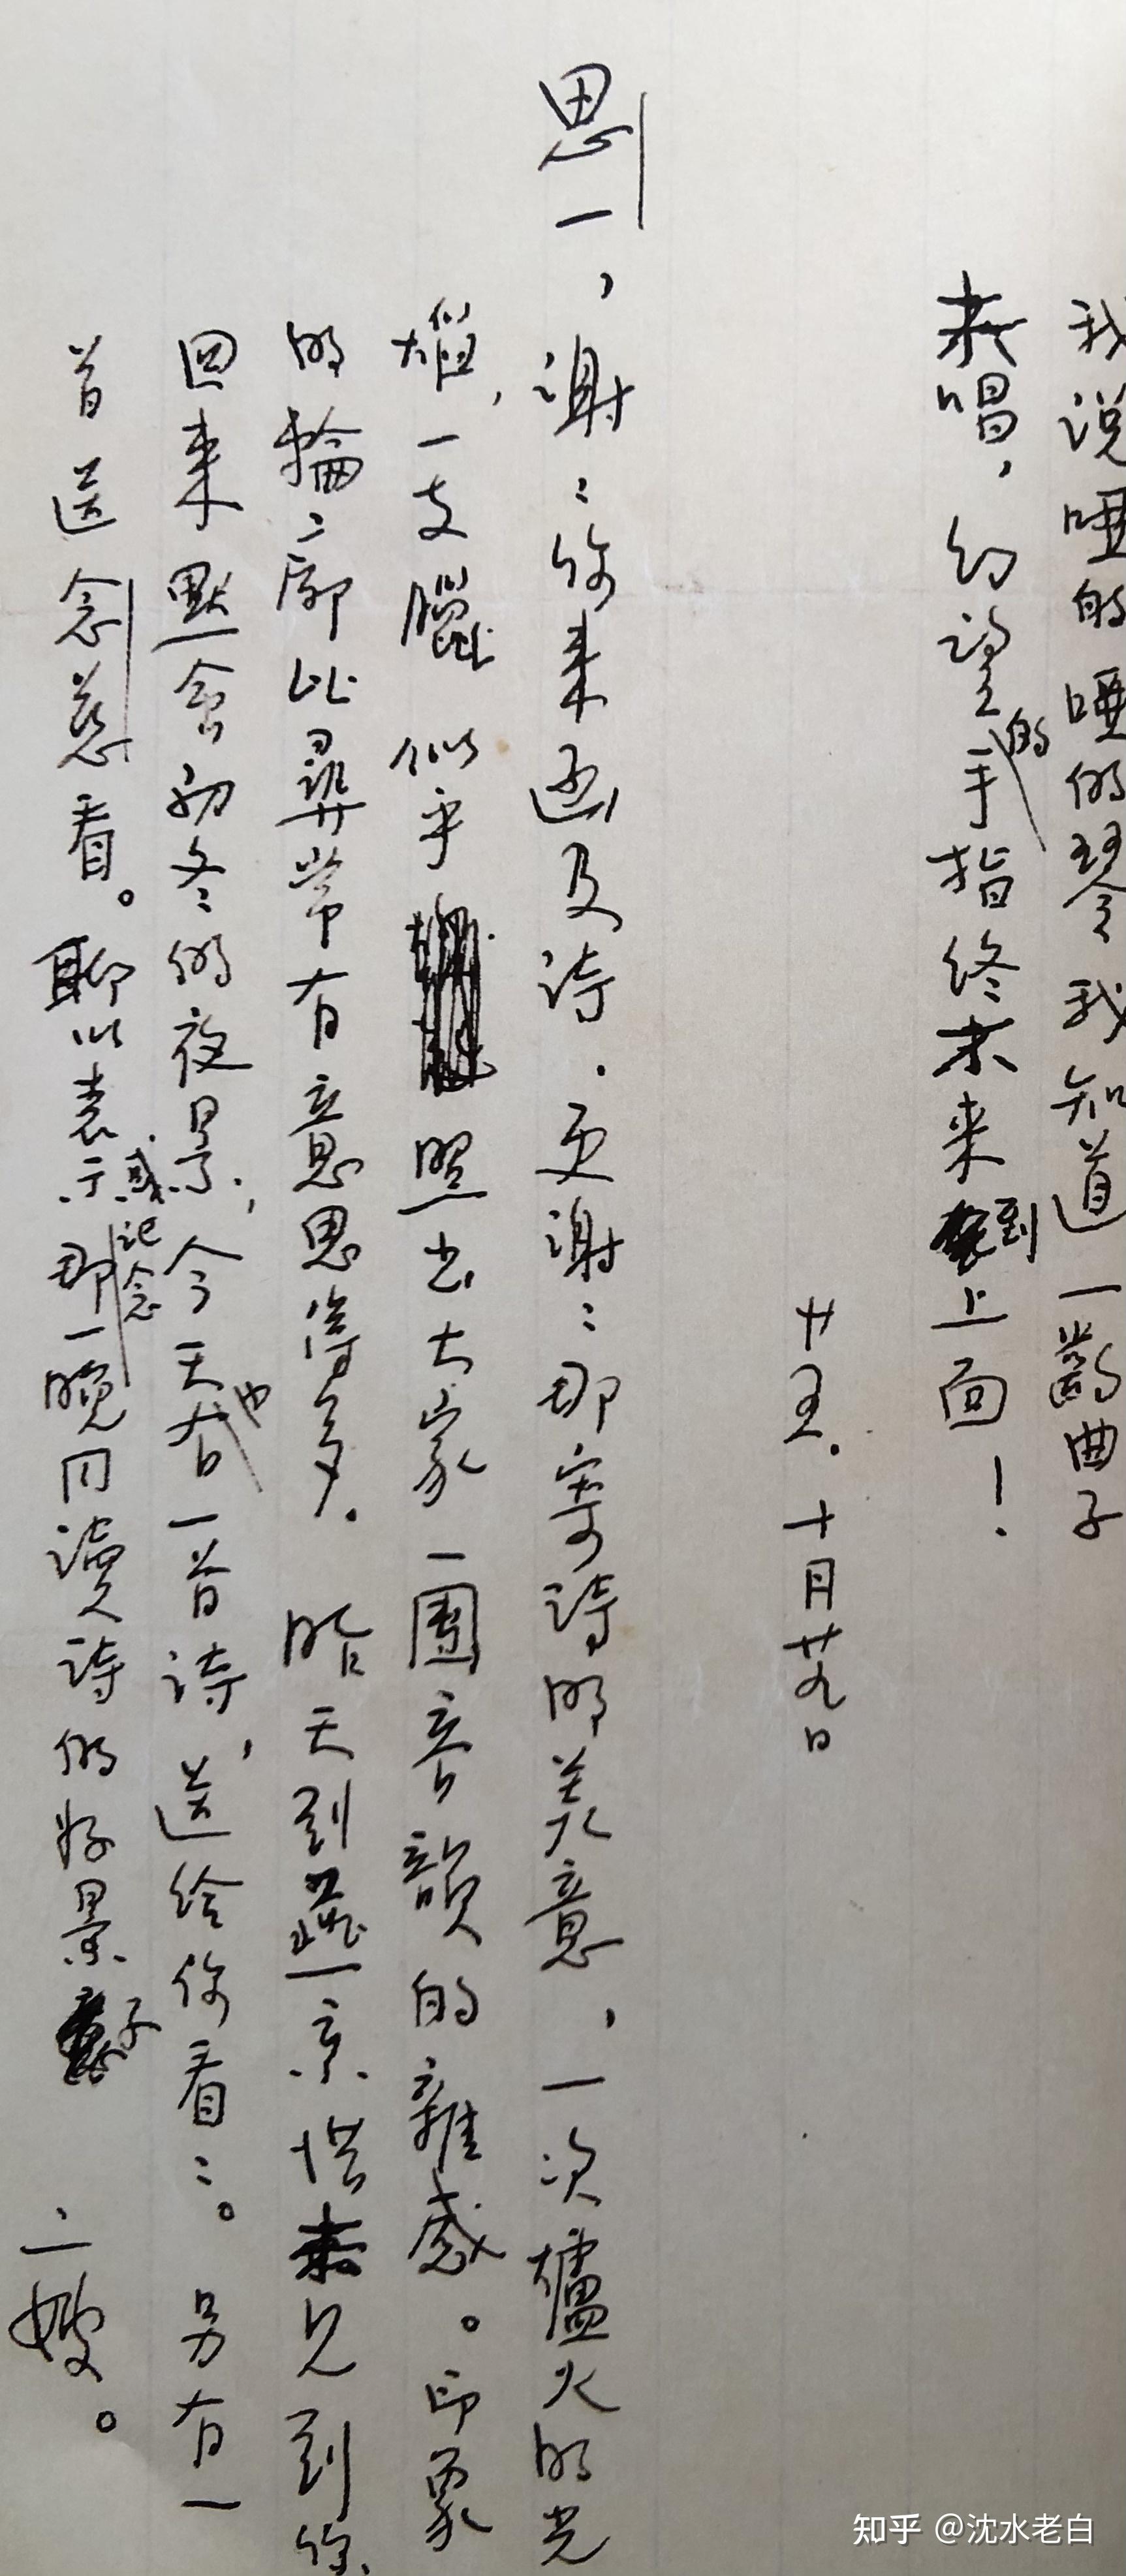 我说哑的哑的琴我知道一齣曲子
未唱，幻望的手指终未来到上面！
廿五．十月廿九日
思一，谢〻你来函及诗．更谢〻那寄诗的美意，一次爐火的光
熖，一支臘 似乎照出大家一團音韻的雜感。印象
的輪、廓比尋常有意思得多．昨天到燕京惜未见到你
回来默念初冬的夜景，今天也有一首诗，送给你看〻。另有一
首送念慈看。聊以表示感记念那一晚同讀诗的好景子 二嫂。
知乎 @沈水老白